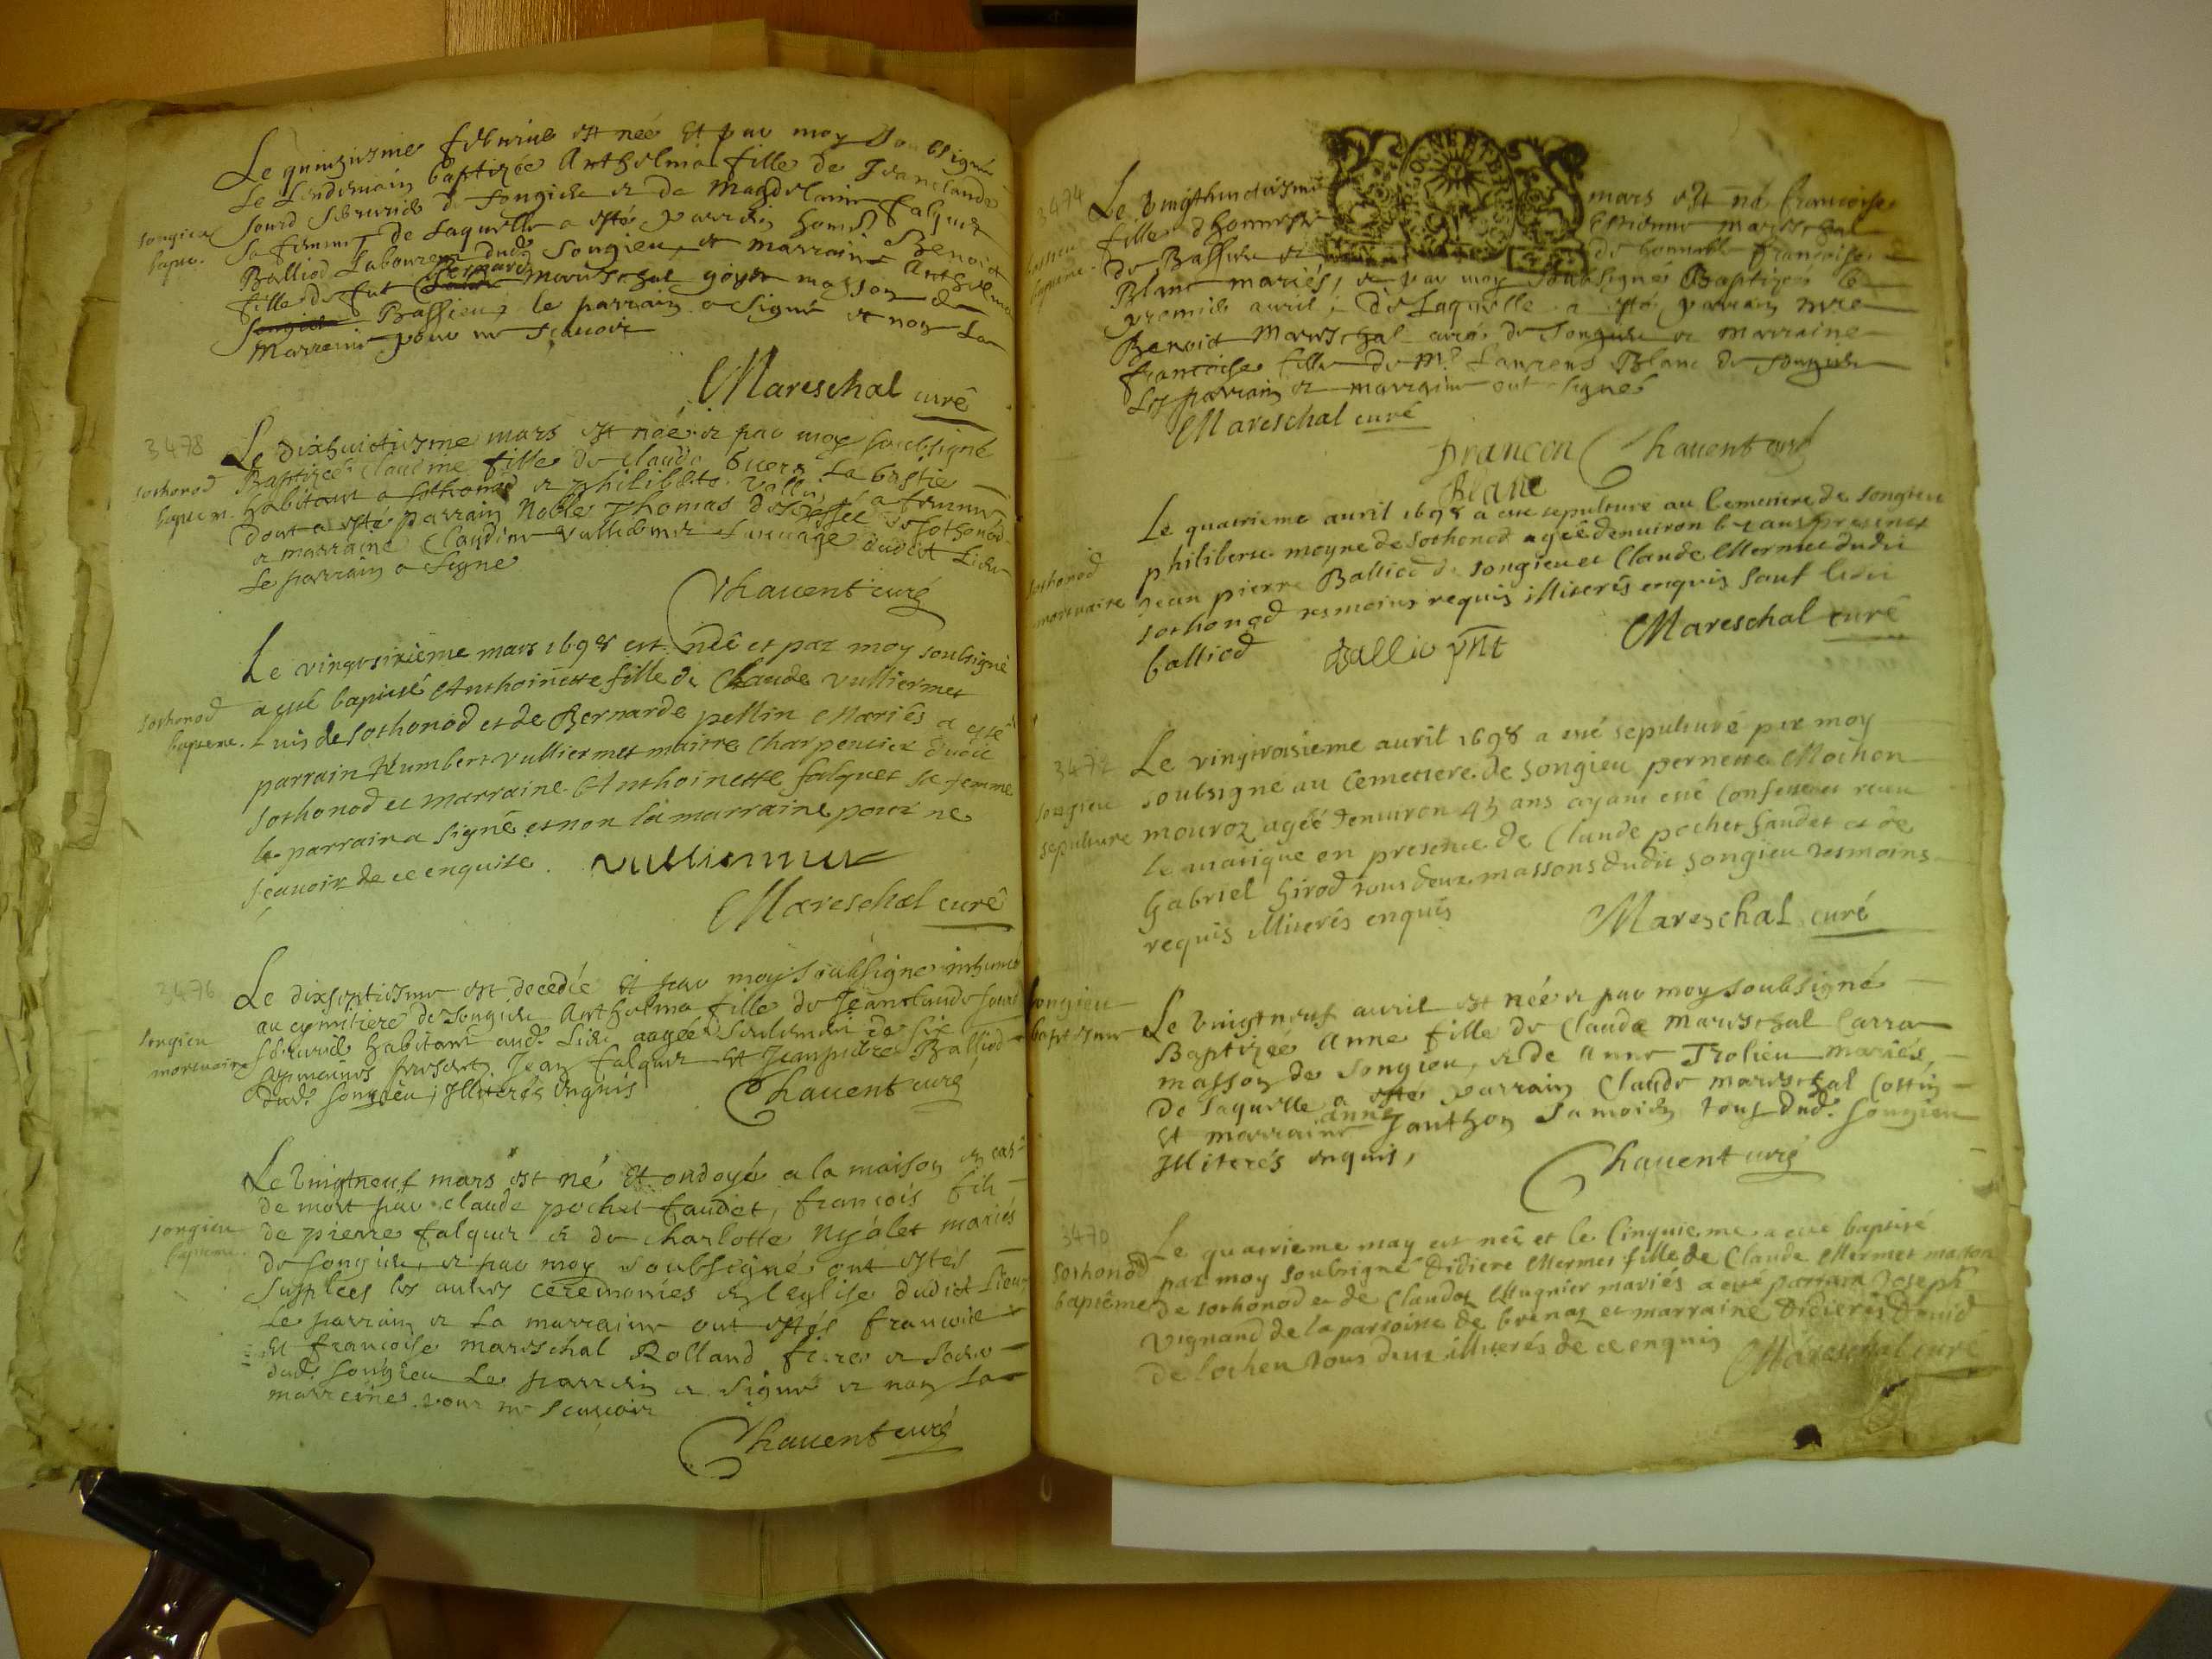 Le quinziesme febvrier est née Et par moy Soubsigné
Le Lendemain baptizée Anthelma fille de Jeanclaude
songieu Sourd Serrurier de songieu et de Magdelaine falquet
baptē. Sa femme, de Laquelle a esté parrain honest Benoict
Balliod Laboureur dud. Songieu, et marraine Anthelma
fille de fut Gespard mareschal goyet masson de
Bassieu, le parrain a signé et non La
Marraine pour ne sçavoir
Mareschal curé
3478
Le dixhuictiesme mars est née et par moy soubsigné
sothonod Baptizée Claudine fille de Claude La bastie
baptem. habitant a sothonod et philiberte sa femme
dont a esté parrain Noble Thomas de sothonod
et marraine Claudine vulliermet dudit Lieu
Le parrain a signe
Chavent curé
Le vingtsixième mars 1698 est née et par moy soubsigné
a esté baptisé Anthoinette fille de Claude vulliermet
sothonod Luis de sothonod et de Bernarde pellin Mariés a esté
bapteme. parrain Humbert vulliermet maitre Charpentier dudit
sothonod et marraine Anthoinette falquet sa femme
le parrain a signé et non la marraine pour ne
sçavoir de ce enquise. vulliermet
Mareschal curé
3476
Le dixseptiesme est decedée Et par moy soubsigné inhumée
au cymitiere de Songieu Anthelma fille de Jeanclaude sourd
songieu Serrurié habitant aud. Lieu aagée Seulement de six
mortuaire sepmaines presents Jean falquet Et Jeanpierre Balliod
dud. songieu; Illiterés enquis
Chavent curé
Le vingtneuf mars est né Et ondoyé a la maison en cas
de mort par claude pochet faudet, françois fils
songieu de pierre falquet et de charlotte Nyalet mariés
bapteme. de songieu, et par moy soubsigné ont estés
Supplees les aultres ceremonies en leglise dudict Lieu,
Le parrain et La marraine ont estés francois
Et francoise mareschal Rolland frere et soeur
dud. songieu Le parrain a signé et non La
marreine pour ne sçavoir
Chavent curé
3474
Le vingthuictiesme mars est né francoise
fille d'honneste Estienne mareschal
de Bassieu et de honneste francoise
Blanc mariés, et par moy soubsigné Baptizée le
premier avril; de Laquelle a esté parrain mre
Benoict Mareschal curé de Songieu et marraine
francoise fille de Mr. Laurens Blanc de songieu
Les parrain et marraine ont signés
Mareschal curé
francon Chavent curé
Blanc
Le quatrieme avril 1698 a eue sepulture au Cemetiere de songieu
sothonod philiberte moyne de sothonod agée denviron ans presents
mortuaire Jean pierre Balliod de songieu et Claude Mermet dudit
sothonod tesmoins requis illiterés enquis sauf ledit
balliod Ballio pnt Mareschal curé
3472
Le vingtroisieme avril 1698 a esté sepulturé par moy
songieu soubsigné au Cemettere de songieu pernette Mochon
sepulture mouroz agéé denviron 45 ans ayant esté Confessée et receu
le viatique en presence de Claude pochet faudet et de
gabriel girod tous deux massons dudit songieu tesmoins
requis illiterés enquis
Mareschal curé
songieu
baptesme Le vingtneuf avril est née et par moy soubsigné
Baptizée Anne fille de Claude Mareschal Carra
masson de Songieu, et de Anne Trolieu mariés,
de laquelle a esté parrain Claude mareschal Cottin
Et marraine anne Janthon Samoien tous dud. songieu
Illiterés enquis,
Chavent curé
3470
Le quatrieme may est née et le Cinquieme a eté baptisé
sothonod par moy soubsigné didiere Mermet fille de Claude Mermet masson
baptême de sothonod et de Claudaz Mugnier mariés a eté parrain Joseph
vignand de la parroisse de brenaz et marraine didiere David
de lochieu tous deux illiterés de ce enquis
Mareschal curé